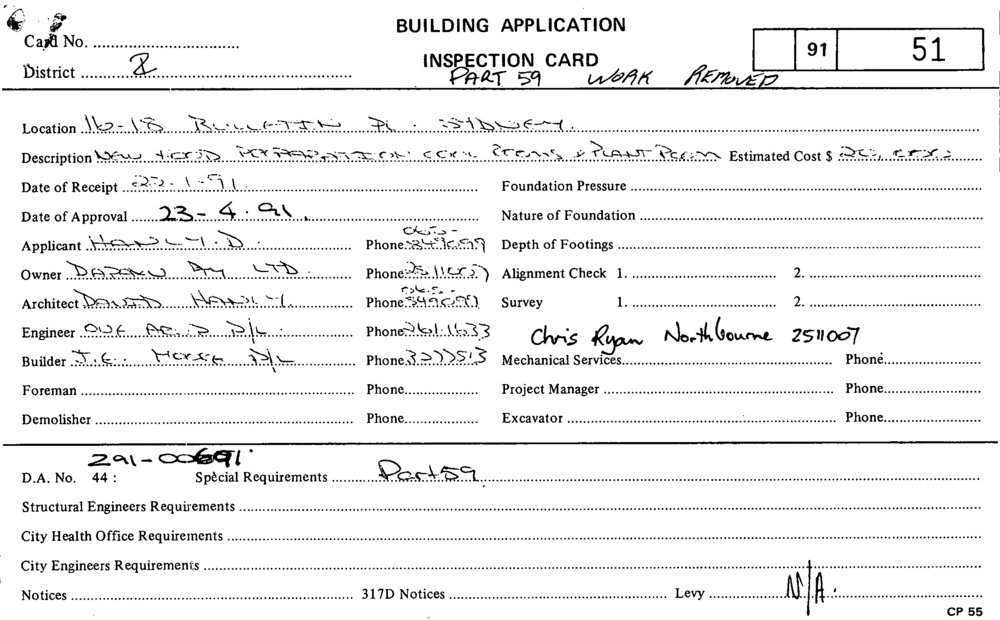 BUILDING APPLICATION
Card No.
INSPECTION CARD
91 51
District 2
PART 59 WORK REMOVED
Location 16-18 BULLETIN PL. SYDNEY.
Description NEW FOOD PREPARATION COOL ROOMS & PLANT ROOM Estimated Cost $
Date of Receipt 22-1-91 Foundation Pressure
Date of Approval 23-4.91. Nature of Foundation
Applicant HANLY. D. Phone Depth of Footings
Owner PTY LTD. Phone Alignment Check 1. 2.
Architect DAVID HANLY Phone Survey 1. 2.
Engineer OVE P/L. Phone 261.1633 Chris Ryan Northbourne 2511007
Builder P/L Phone Mechanical Services Phone
Foreman Phone Project Manager Phone
Demolisher Phone Excavator Phone
D.A. No. 44 : Z91-00691 Special Requirements Part 59
Structural Engineers Requirements
City Health Office Requirements
City Engineers Requirements
Notices 317D Notices Levy N/A.
CP 55